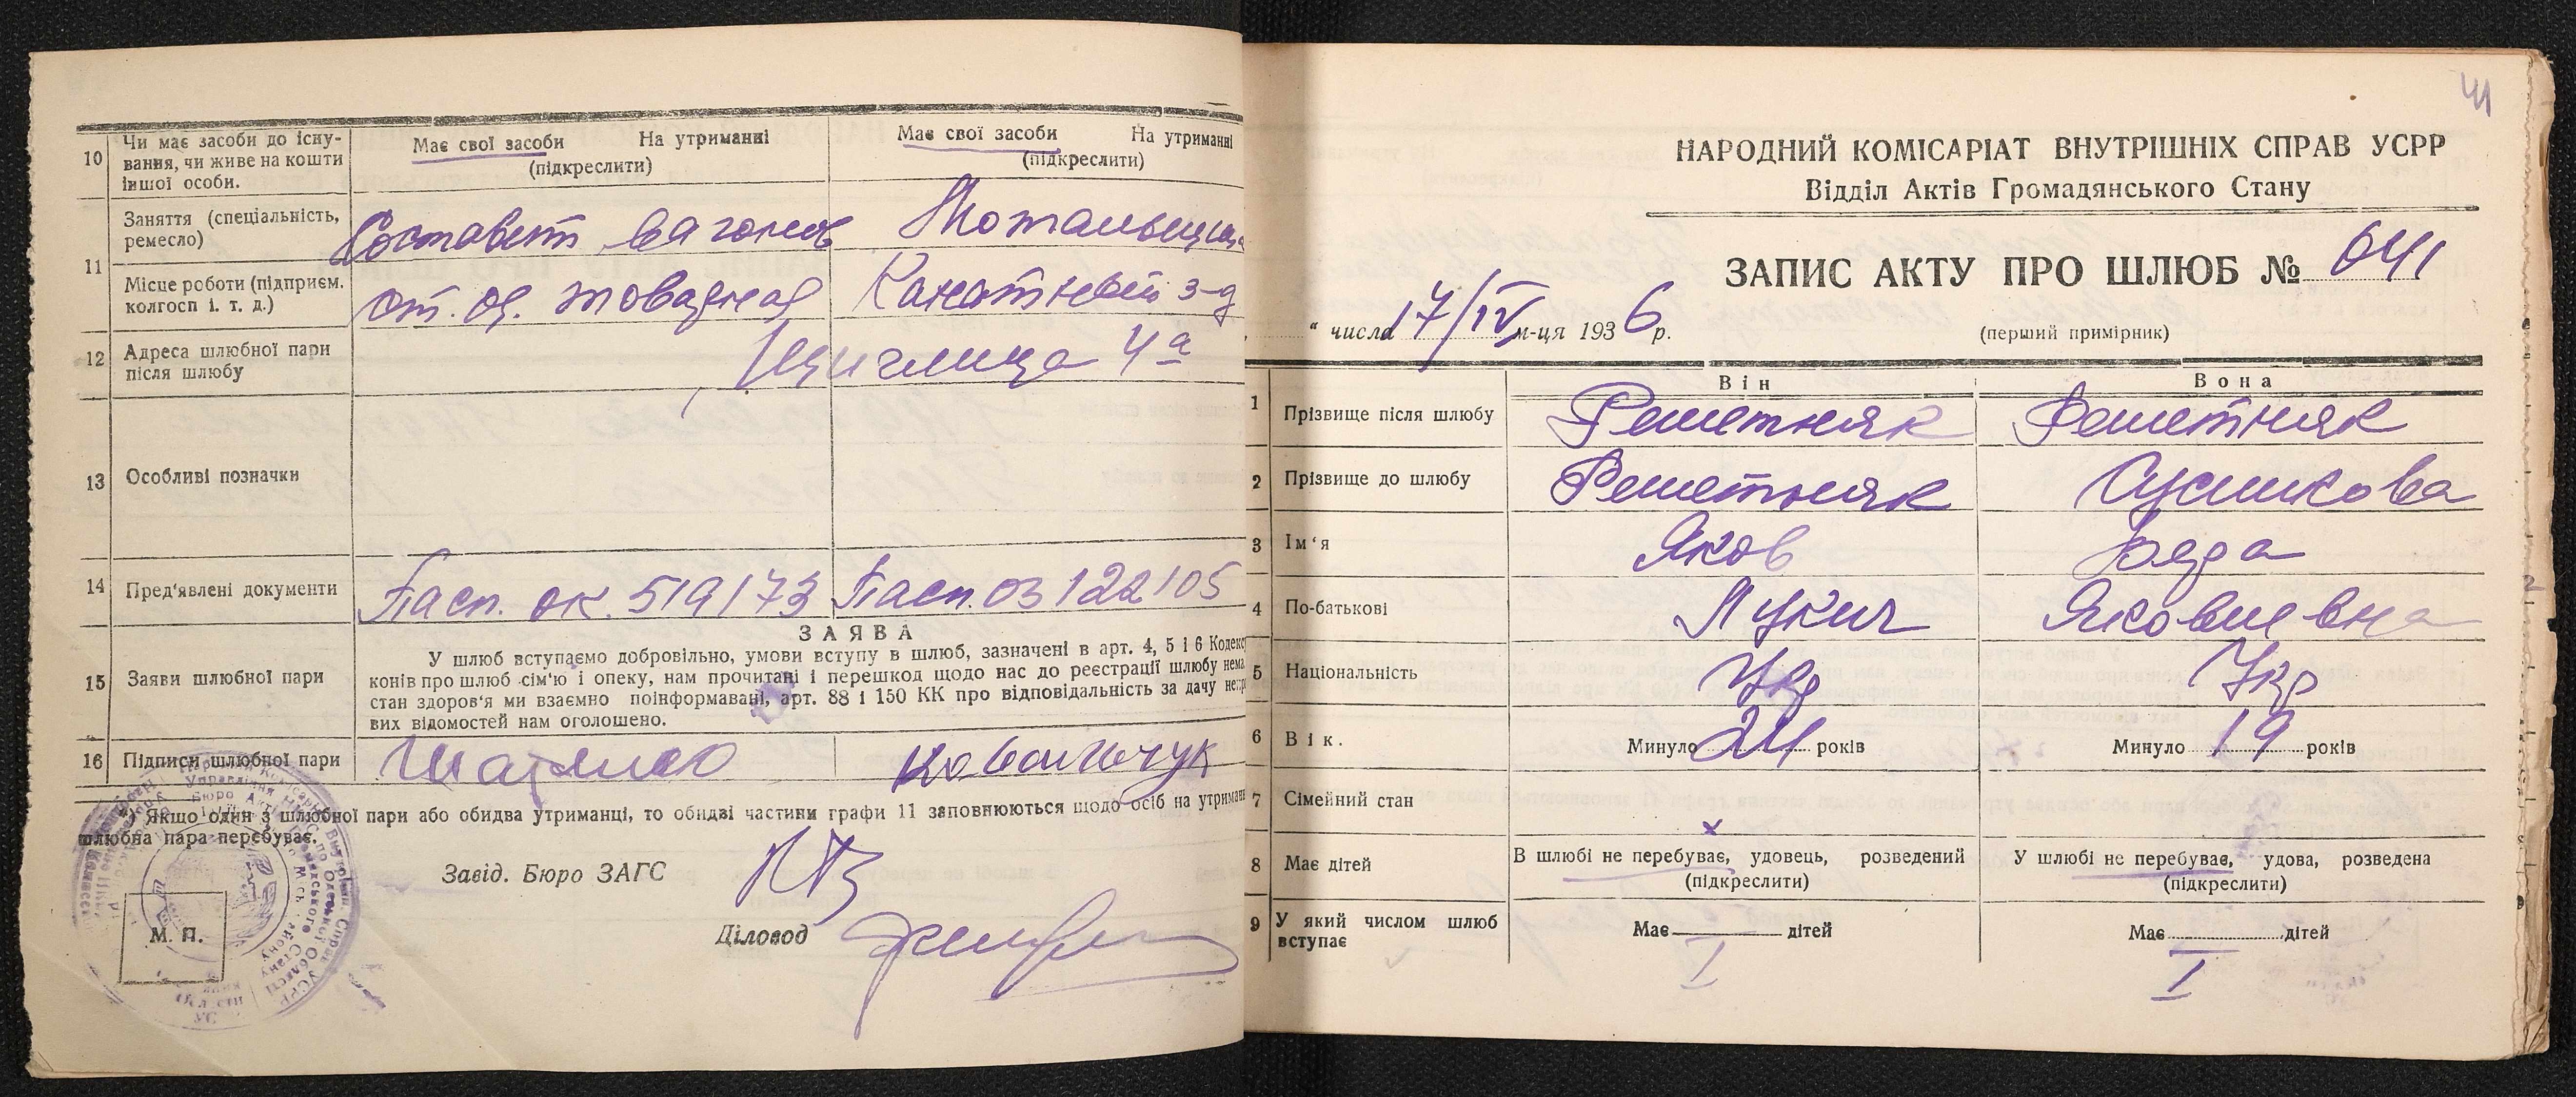 10 Чи має засоби до існу-
вання, чи живе на кошти
іншої особи.
Має свої засоби На утриманні
(підкреслити)
Має свої засоби На утриманні
(підкреслити)
11 Заняття (спеціальність,
ремесло)
Составит вагонов
Мотальщица
Місце роботи (підприєм.
колгосп і. т. д.)
ст. од. товарная
Канатный з-д
12 Адреса шлюбної пари
після шлюбу
4а
13 Особливі позначки
14 Пред'явлені документи
Пасп. ок. 519173
Пасп. 03 122105
15 Заяви шлюбної пари
ЗАЯВА
У шлюб вступаємо добровільно, умови вступу в шлюб, зазначені в арт. 4, 5 і 6 Кодекс
конів про шлюб сім'ю і опеку, нам прочитані і перешкод щодо нас до реєстрації шлюбу нема
стан здоров'я ми взаємно поінформавані, арт. 88 і 150 КК про відповідальність за дачу непр
вих відомостей нам оголошено.
16 Підписи шлюбної пари
Ковальчук
*) Якщо один з шлюбної пари або обидва утриманці, то обидві частини графи 11 заповнюються щодо осіб на утриман
шлюбна пара перебуває.
Завід. Бюро ЗАГС
Діловод
М. П.
41
НАРОДНИЙ КОМІСАРІАТ ВНУТРІШНІХ СПРАВ УСРР
Відділ Актів Громадянського Стану
ЗАПИС АКТУ ПРО ШЛЮБ № 641
" числа 17/IV м-ця 1936 р.
(перший примірник)
Він Вона
1 Прізвище після шлюбу Решетняк Решетняк
2 Прізвище до шлюбу Решетняк
3 Ім'я Яков
4 По-батькові Лукич Яковлевна
5 Національність Укр Укр
6 Вік. Минуло 24 років Минуло 19 років
7 Сімейний стан
8 Має дітей
В шлюбі не перебуває, удовець, розведений
(підкреслити)
У шлюбі не перебуває, удова, розведена
(підкреслити)
9 У який числом шлюб
вступає
Має дітей
I
Має дітей
I